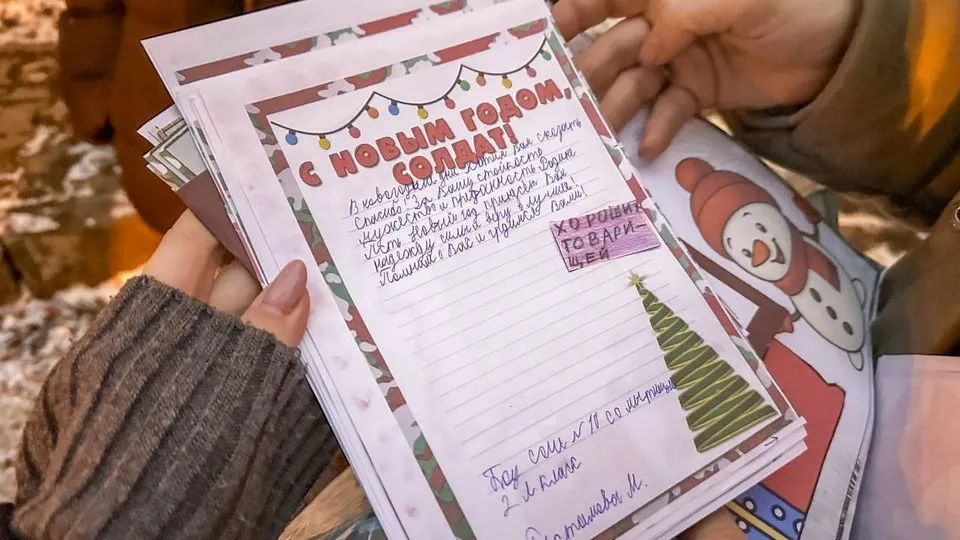 С НОВЫМ ГОДОМ,
СОЛДАТ!
В новогодние дни хотим Вам сказать
спасибо за Вашу стойкость
мужество и преданность Родине
Пусть Новый год принесёт Вам
надежду силы и веру в лучшее!
Помним о Вас и гордимся Вами!
ХОРОШИХ
ТОВАРИ-
ЩЕЙ
сош №10
2 Л класс
М.